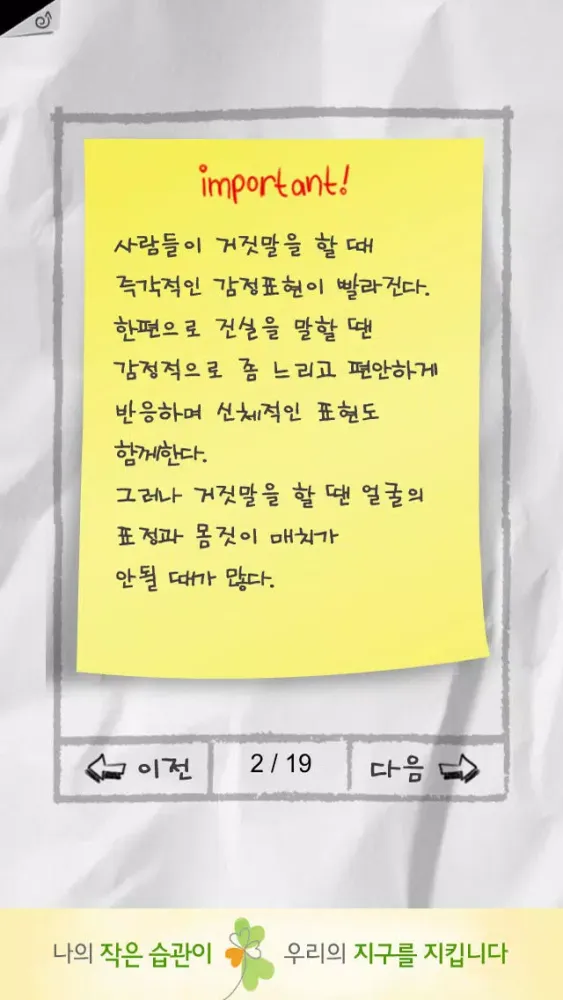 important!
사람들이 거짓말을 할 때
즉각적인 감정표현이 빨라진다.
한편으로 진실을 말할 땐
감정적으로 좀 느리고 편안하게
반응하며 신체적인 표현도
함께한다.
그러나 거짓말을 할 땐 얼굴의
표정과 몸짓이 매치가
안될 때가 많다.
이전
2 / 19
다음
나의 작은 습관이 우리의 지구를 지킵니다